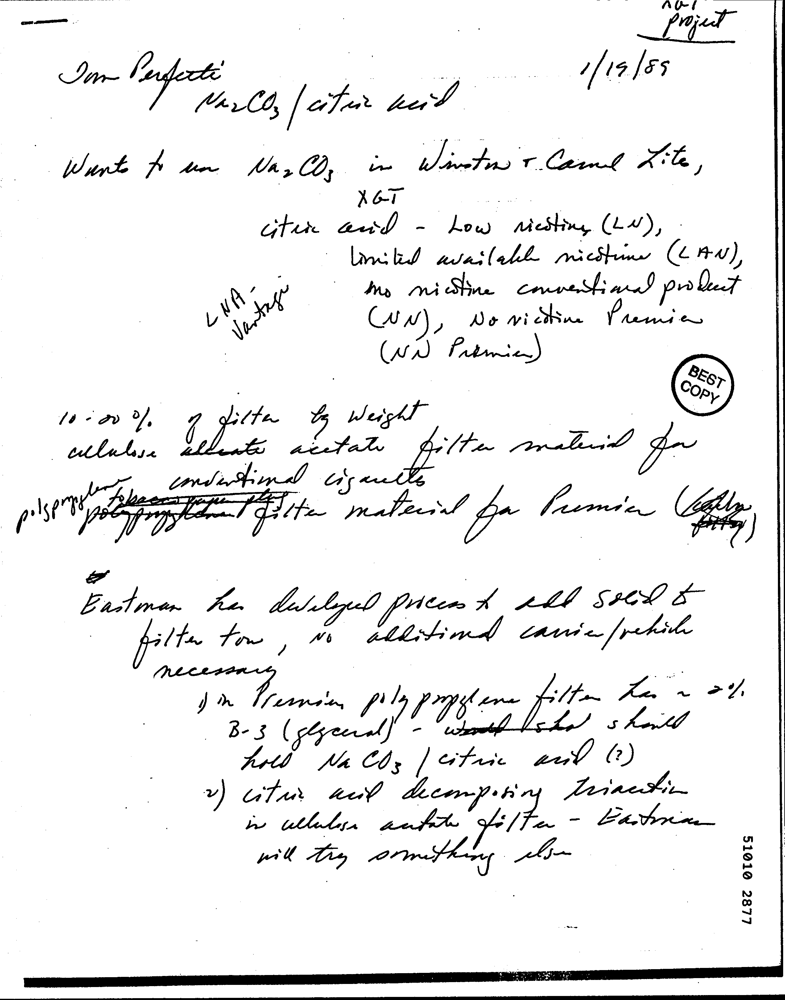 XGT
project
1/19/89
Tom Perfetti
Na2CO3 / citric acid
Wants to use Na2CO3 in Winston + Camel Lite,
XGT
citric acid - Low nicotine (LN),
limited available nicotine (LAN),
no nicotine conventional product
LNA -
Vantage
(NN), No nicotine Premier
(NN Premier)
BEST
COPY
% of filter by weight
cellulose acetate filter material for
conventional cigarettes
polypropylene filter material for Premier
Eastman has developed process to add solid to
filter tow, no additional carrier/vehicle
necessary
1) in Premier polypropylene filter has ~ 2%
B-3 (glycerol) - should
hold NaCO3 / citric acid (?)
2) citric acid decomposing triacetin
in cellulose acetate filter - Eastman
will try something else
51010 2877